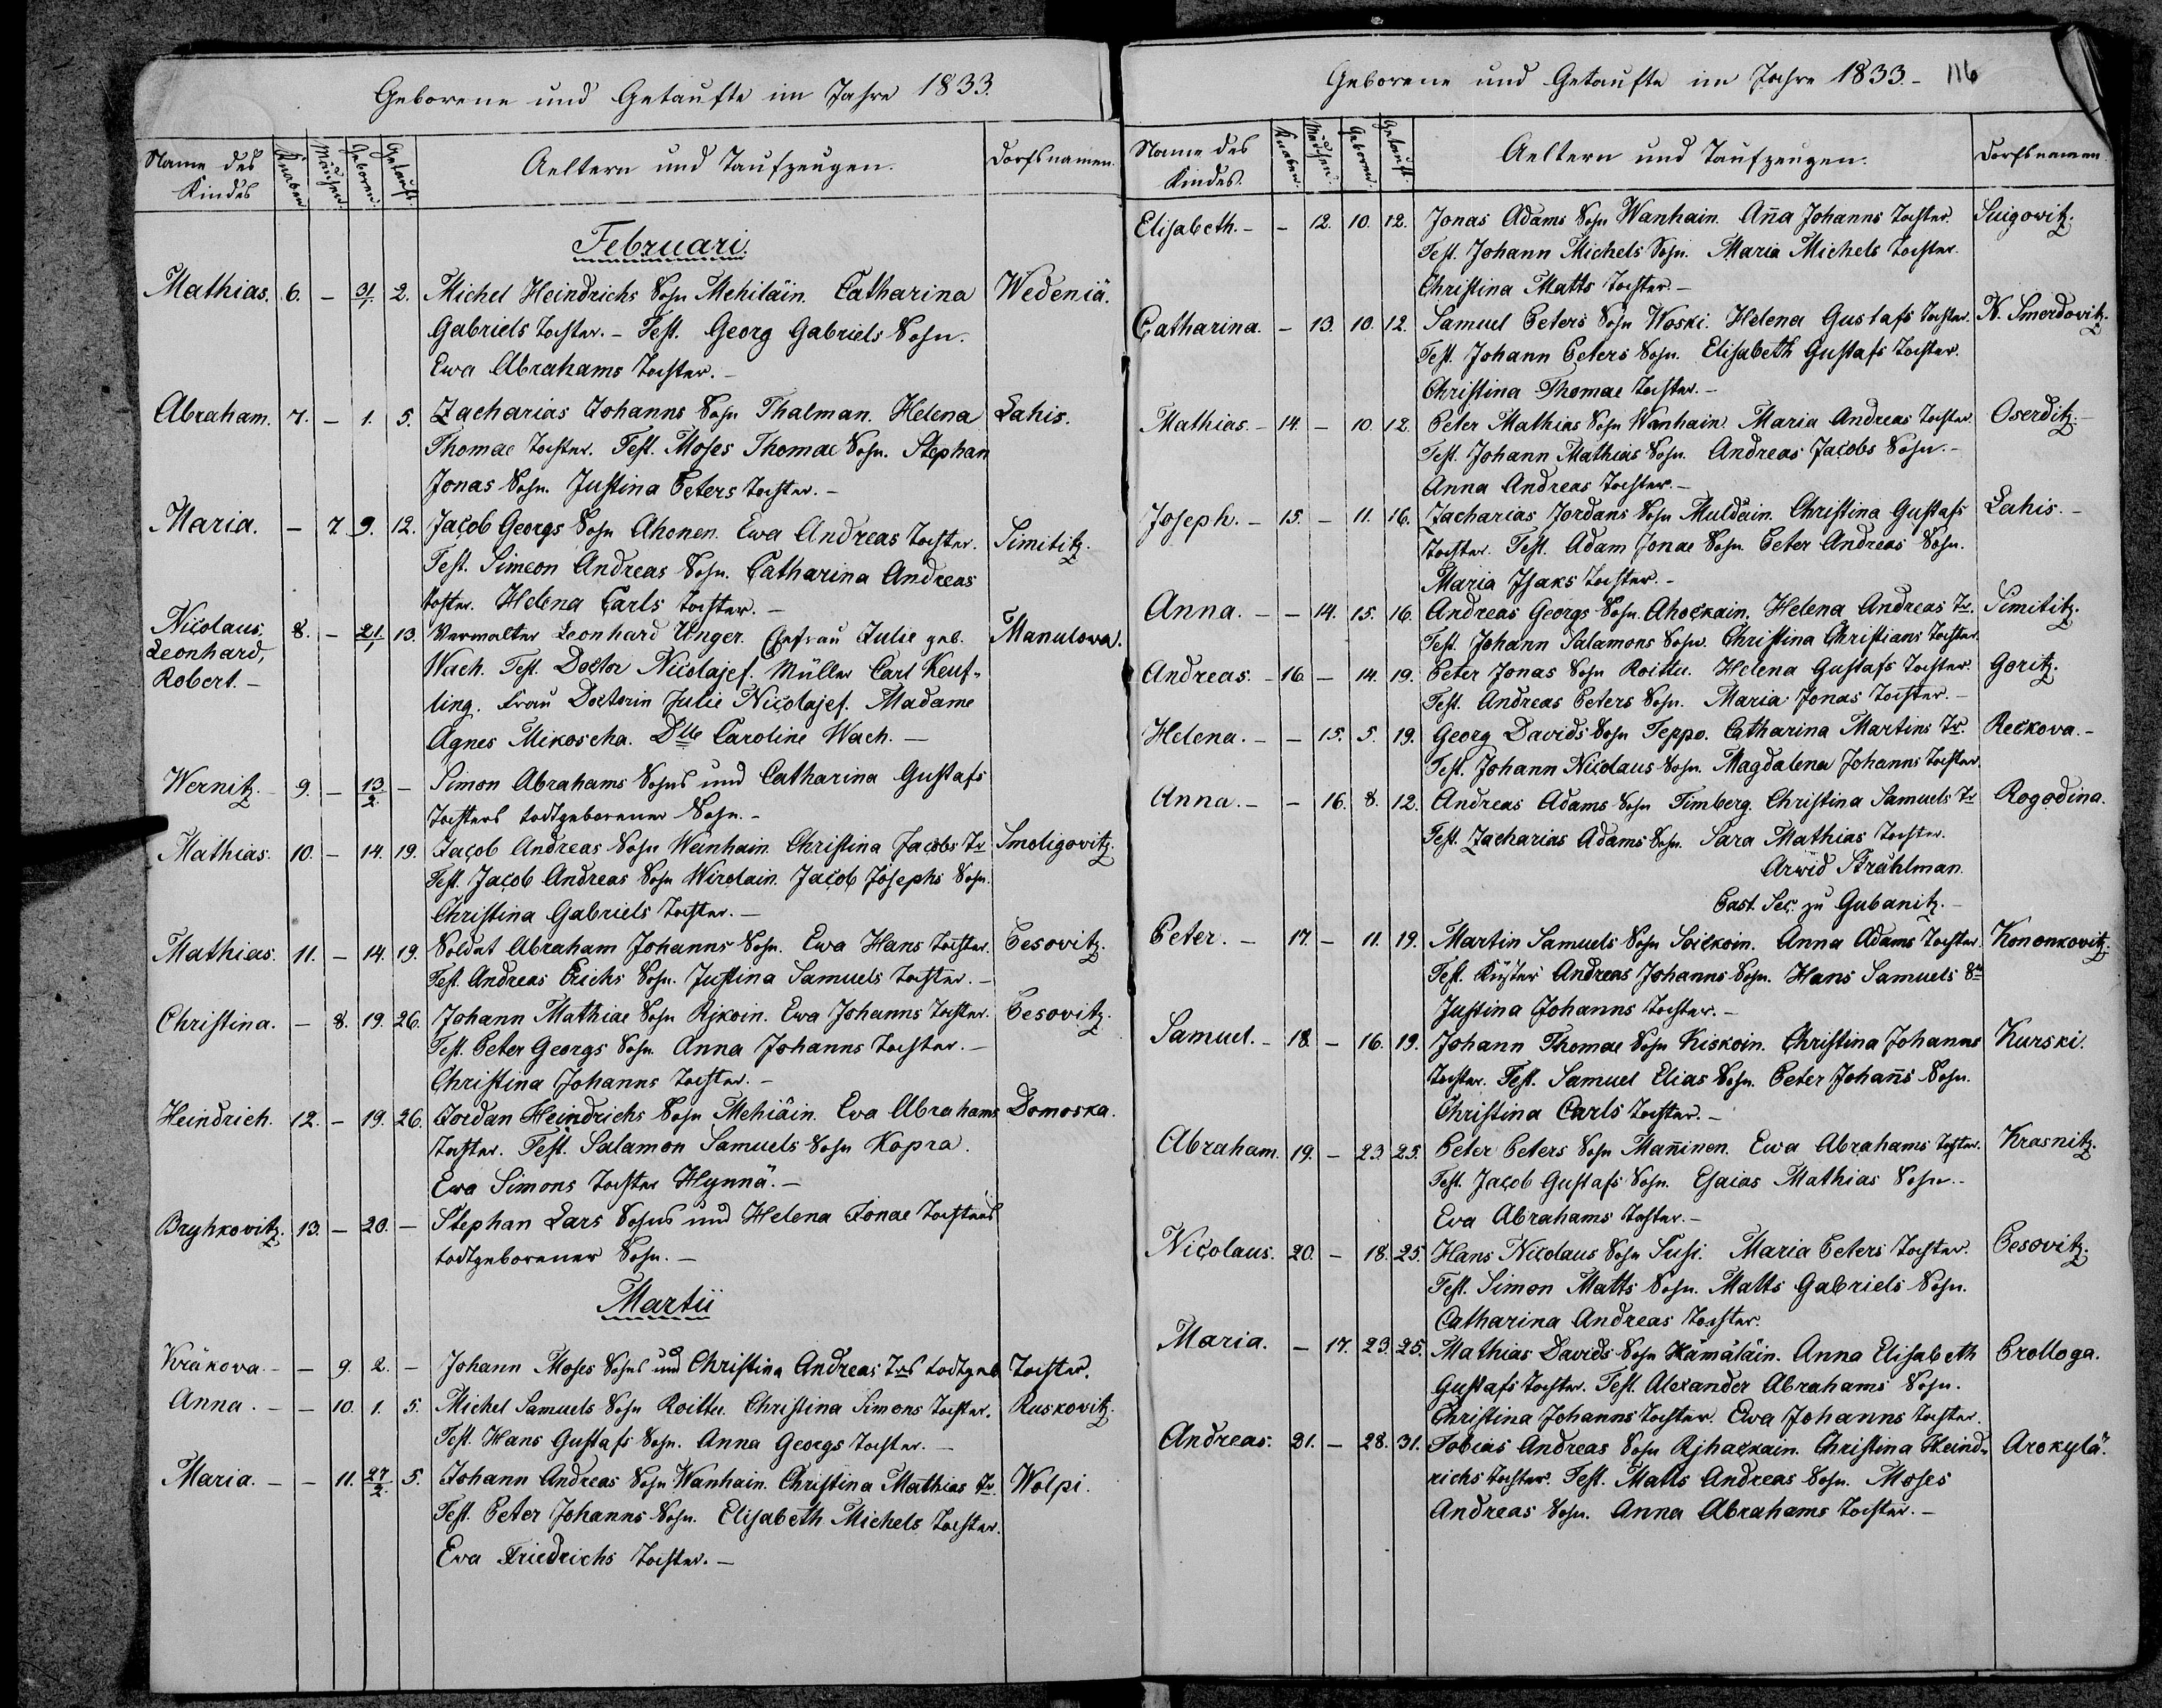 Geborene und Getaufte im Jahre 1833.
Name des Kindes | Knaben | Mädchen | Geboren. | Getauft | Aeltern und Taufzeugen. | Dorfsnamen.
Februari.
Mathias. 6. – 31/1. 2. Michel Heindrichs Sohn Mehiläin. Catharina Wedeniä.
Gabriels Tochter. – Test. Georg Gabriels Sohn.
Ewa Abrahams Tochter. –
Abraham. 7. – 1. 5. Zacharias Johanns Sohn Thalman. Helena Lahis.
Thomae Tochter. Test. Moses Thomae Sohn. Stephan
Jonas Sohn. Justina Peters Tochter. –
Maria. – 7 9. 12. Jacob Georgs Sohn Ahonen. Ewa Andreas Tochter. Simititz.
Test. Simeon Andreas Sohn. Catharina Andreas
Tochter. Helena Carls Tochter. –
Nicolaus, 8. – 21/1 13. Verwalter Leonhard Unger. Ehefrau Julie geb. Manulowa.
Leonhard, Wach. Test. Doctor Nicolajef. Müller Carl Keuf-
Robert. – ling. Frau Doctorin Julie Nicolajef. Madame
Agnes Mikoscha. Dlle Caroline Wach. –
Wernitz. – 9. – 13/2. – Simon Abrahams Sohns und Catharina Gustafs
Tochters todtgeborener Sohn. –
Mathias. 10. – 14. 19. Jacob Andreas Sohn Wanhain. Christina Jacobs Tr Smoligovitz.
Test. Jacob Andreas Sohn Wirolain. Jacob Josephs Sohn.
Christina Gabriels Tochter. –
Mathias. 11. – 14. 19. Soldat Abraham Johanns Sohn. Ewa Hans Tochter. Pesovitz.
Test. Andreas Erichs Sohn. Justina Samuels Tochter. –
Christina. – 8. 19. 26. Johann Mathiae Sohn Rjkoin. Ewa Johanns Tochter. Pesovitz.
Test. Peter Georgs Sohn. Anna Johanns Tochter. –
Christina Johanns Tochter. –
Heindrich. 12. – 19. 26. Jordan Heindrichs Sohn Mehiäin. Eva Abrahams Domoska.
Tochter. Test. Salamon Samuels Sohn Kopra.
Ewa Simons Tochter Hynnä. –
Bryhkovitz. 13. – 20. – Stephan Lars Sohns und Helena Jonae Tochters
todtgeborener Sohn. –
Martii
Kräkova. – – 9. 2. – Johann Moses Sohns und Christina Andreas Trs todtgeb Tochter.
Anna. – – 10. 1. 5. Michel Samuels Sohn Roittu. Christina Simons Tochter. Ruskovitz.
Test. Hans Gustafs Sohn. Anna Georgs Tochter. –
Maria. – – 11. 27/2. 5. Johann Andreas Sohn Wanhain. Christina Mathias Tr. Wolpi.
Test. Peter Johanns Sohn. Elisabeth Michels Tochter.
Eva Friedrichs Tochter. –
Geborene und Getaufte im Jahre 1833. – 116
Name des Kindes. | Knaben. | Mädchen. | Geboren. | Getauft. | Aeltern und Taufzeugen. | Dorfsnamen
Elisabeth. – – 12. 10. 12. Jonas Adams Sohn Wanhain. Anna Johanns Tochter. Suigowitz.
Test. Johann Michels Sohn. Maria Michels Tochter.
Christina Matts Tochter. –
Catharina. – 13. 10. 12. Samuel Peters Sohn Woski. Helena Gustafs Tochter. N. Smerdovitz.
Test. Johann Peters Sohn. Elisabeth Gustafs Tochter.
Christina Thomae Tochter. –
Mathias. – 14. – 10. 12. Peter Mathias Sohn Wanhain. Maria Andreas Tochter Oserditz. –
Test. Johann Mathias Sohn. Andreas Jacobs Sohn. –
Anna Andreas Tochter. –
Joseph. – 15. – 11. 16. Zacharias Jordans Sohn Muldain. Christina Gustafs Lahis. –
Tochter. Test. Adam Jonae Sohn. Peter Andreas Sohn.
Maria Isaks Tochter. –
Anna. – – 14. 15. 16. Andreas Georgs Sohn. Ahockain. Helena Andreas Tr. Simititz.
Test. Johann Salamons Sohn. Christina Christians Tochter.
Andreas. – 16 – 14. 19. Peter Jonas Sohn Roittu. Helena Gustafs Tochter. Goritz.
Test. Andreas Peters Sohn. Maria Jonas Tochter. –
Helena. – – 15. 5. 19. Georg Davids Sohn Teppo. Catharina Martins Tr. Reckova. –
Test. Johann Nicolaus Sohn. Magdalena Johanns Tochter.
Anna. – – 16. 8. 12. Andreas Adams Sohn Timberg. Christina Samuels Tr Rogodina.
Test. Zacharias Adams Sohn. Sara Mathias Tochter.
Arwid Strählman.
Past. Sec. zu Gubanitz. –
Peter. – 17. – 11. 19. Martin Samuels Sohn Soickoin. Anna Adams Tochter. Kononkovitz.
Test. Küster Andreas Johanns Sohn. Hans Samuels Sn
Justina Johanns Tochter. –
Samuel. – 18. – 16. 19. Johann Thomae Sohn Kiskoin. Christina Johanns Kurski.
Tochter. Test. Samuel Elias Sohn. Peter Johanns Sohn.
Christina Carls Tochter. –
Abraham. 19. – 23. 25. Peter Peters Sohn Manninen. Ewa Abrahams Tochter. Krasnitz.
Test. Jacob Gustafs Sohn. Esaias Mathias Sohn. –
Eva Abrahams Tochter. –
Nicolaus. 20. – 18. 25. Hans Nicolaus Sohn Susi. Maria Peters Tochter. Pesovitz.
Test. Simon Matts Sohn. Matts Gabriels Sohn.
Catharina Andreas Tochter.
Maria. – 17. 23. 25. Mathias Davids Sohn Hämäläin. Anna Elisabeth Prologa.
Gustafs Tochter. Test. Alexander Abrahams Sohn.
Christina Johanns Tochter. Ewa Johanns Tochter.
Andreas. 21. – 28. 31. Tobias Andreas Sohn Rjhackain. Christina Heind- Arokylä.
richs Tochter. Test. Matts Andreas Sohn. Moses
Andreas Sohn. Anna Abrahams Tochter. –